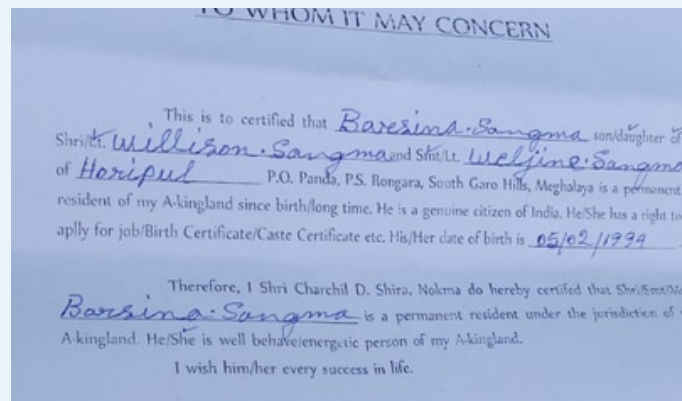 TO WHOM IT MAY CONCERN
This is to certified that Baresina. Sangma son/daughter of
Shri/Lt. Willison. Sangma and Smt/Lt. Weljine. Sangma
of Horipul P.O. Panda, P.S. Rongara, South Garo Hills, Meghalaya is a permanent
resident of my A-kingland since birth/long time. He is a genuine citizen of India. He/She has a right to
aplly for job/Birth Certificate/Caste Certificate etc. His/Her date of birth is 05/02/1994
Therefore, I Shri Charchil D. Shira, Nokma do hereby certifed that Shri/Smt/
Barsina. Sangma is a permanent resident under the jurisdiction of
A-kingland. He/She is well behave/energetic person of my A-kingland.
I wish him/her every success in life.